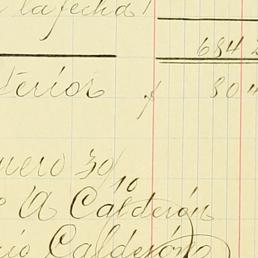 la fecha!
684 2
terior $ 804
nero 30/10
A Calderón
io Calderón